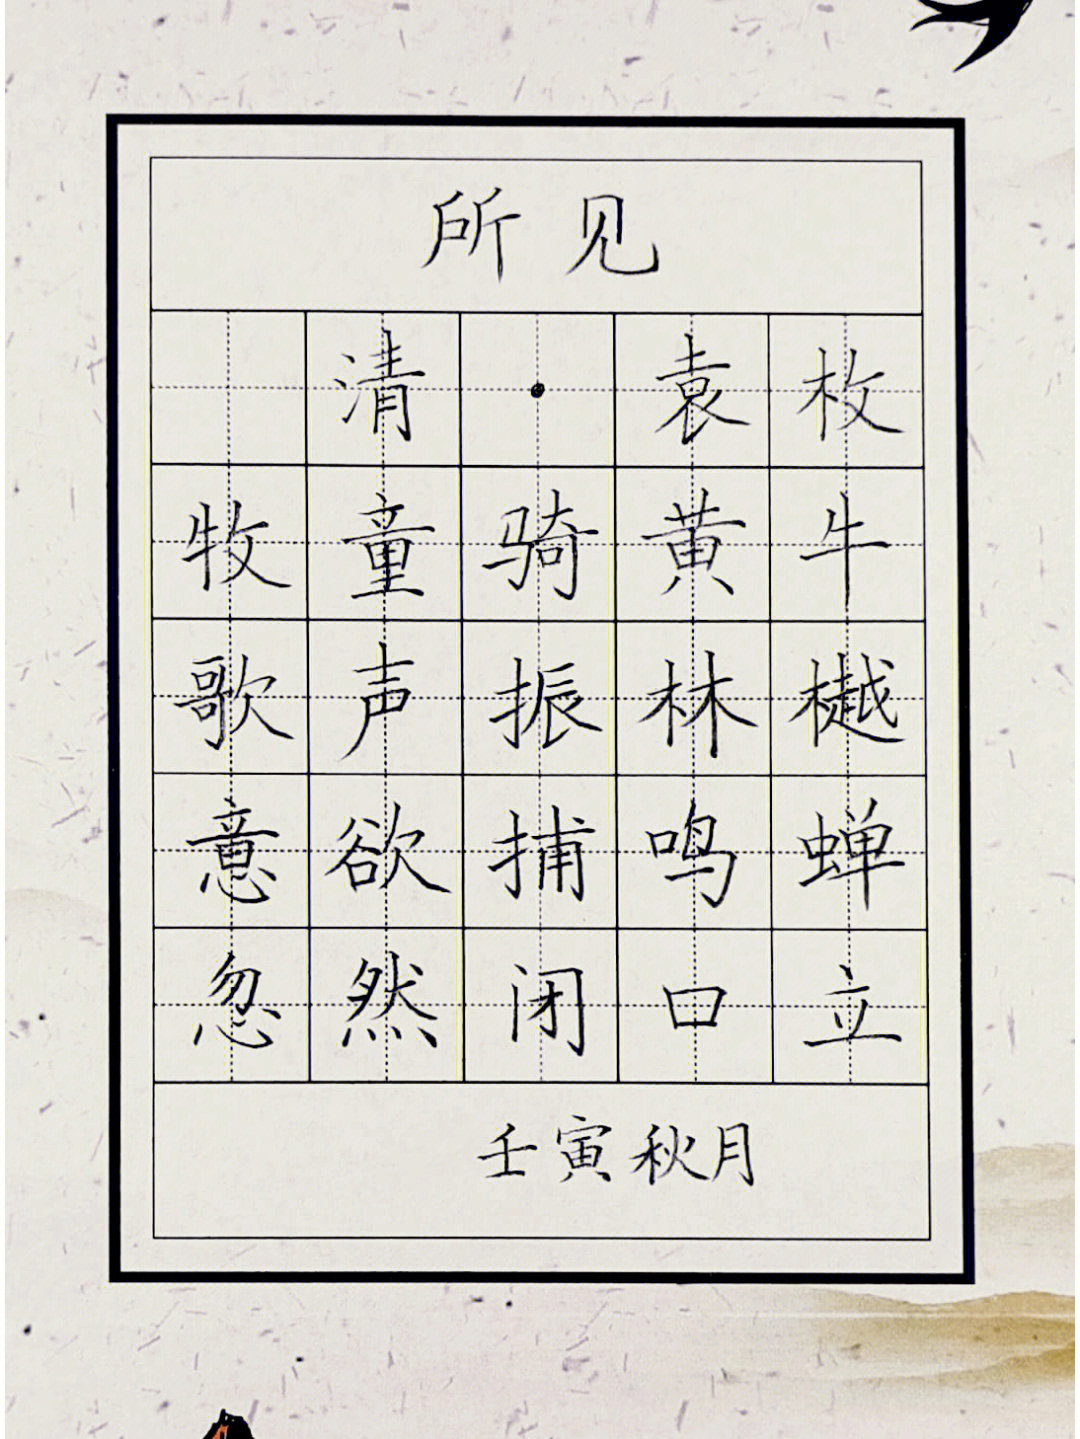 所见
清·袁枚
牧童骑黄牛
歌声振林樾
意欲捕鸣蝉
忽然闭口立
壬寅秋月